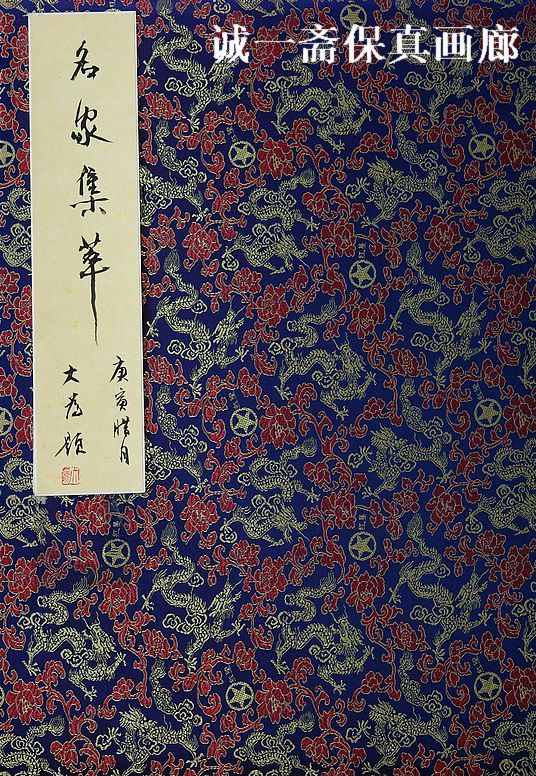 诚一斋保真画廊
名家集萃
庚寅腊月
大为题